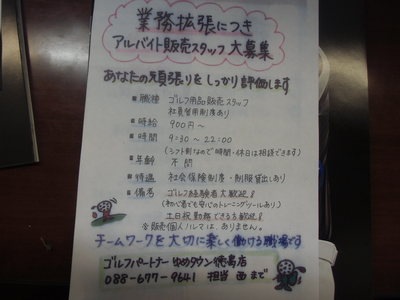 業務拡張につき
アルバイト販売スタッフ大募集
あなたの頑張りをしっかり評価します
■職種 ゴルフ用品販売スタッフ
社員登用制度あり
■時給 900円〜
■時間 9:30〜22:00
(シフト制なので時間・休日は相談できます)
■年齢 不問
■待遇 社会保険制度・制服貸出しあり
■備考 ゴルフ経験者大歓迎!
(初心者でも安心のトレーニングツールあり)
土日祝勤務できる方歓迎!
※販売個人ノルマは、ありません。
チームワークを大切に楽しく働ける職場です
ゴルフパートナー ゆめタウン徳島店
088-677-9641 担当 西まで